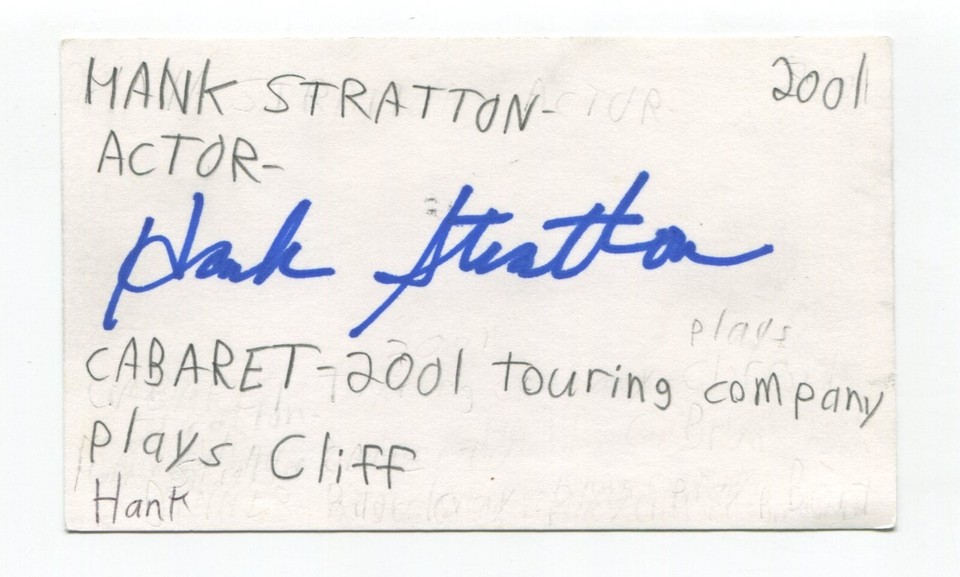 HANK STRATTON- 2001
ACTOR-
Hank Stratton
plays
CABARET-2001 touring company
plays Cliff
Hank